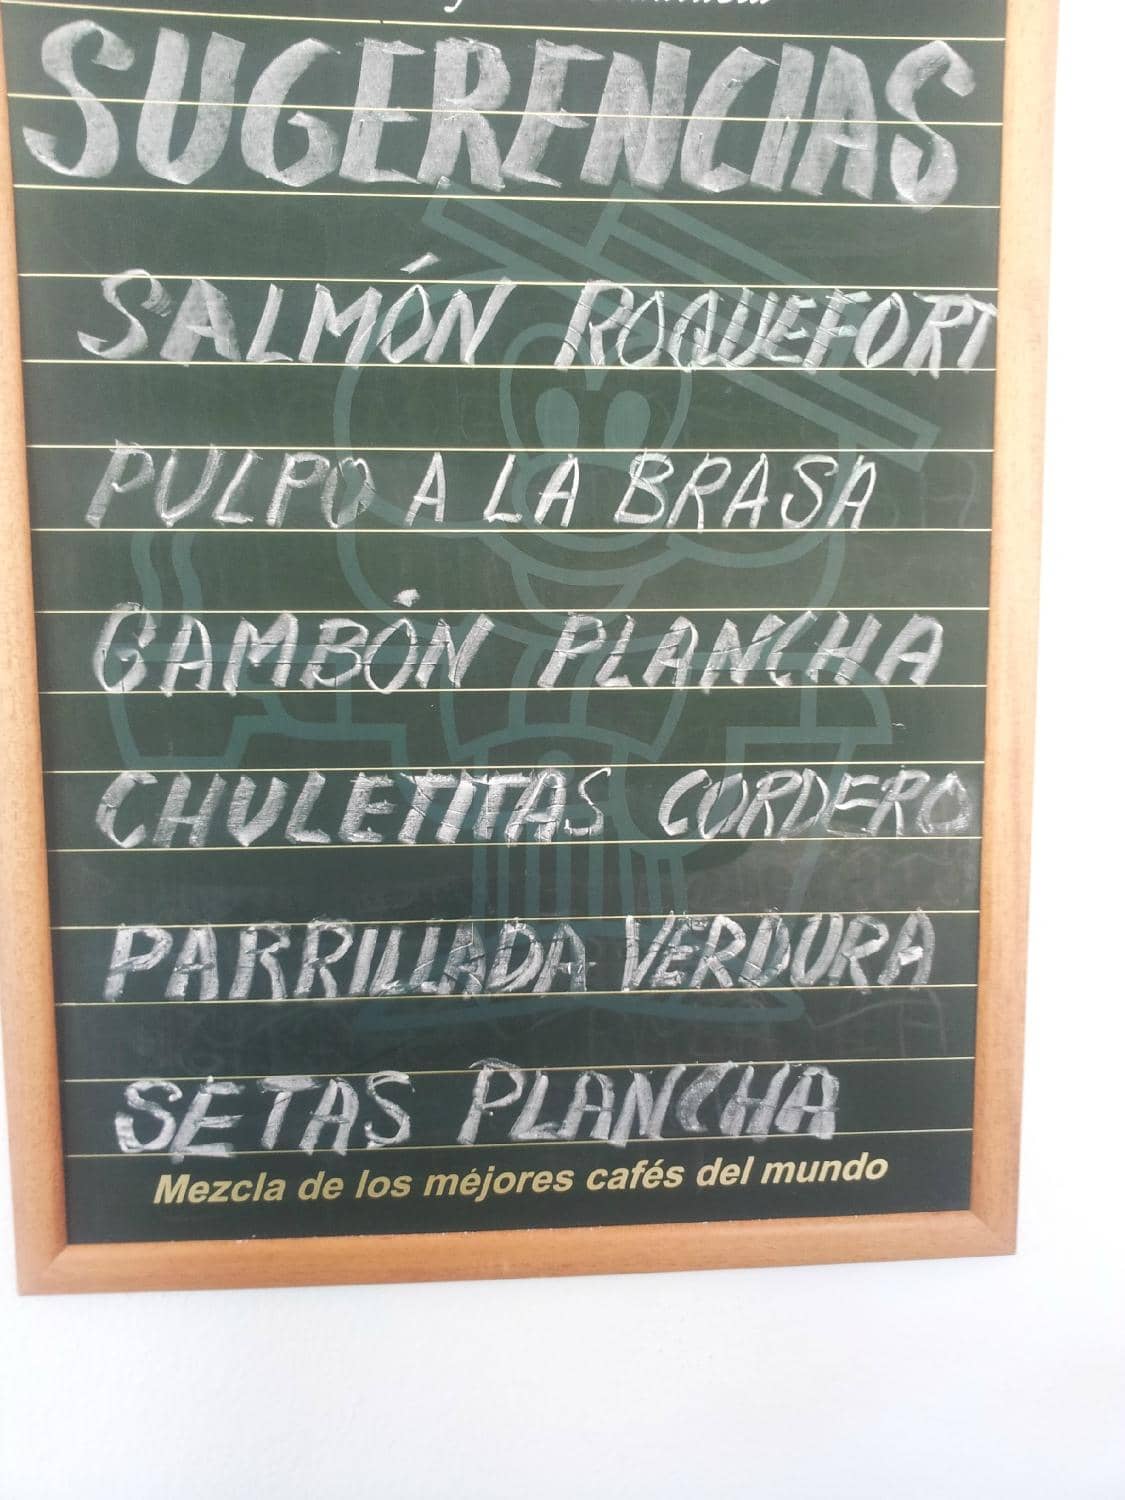 SUGERENCIAS
SALMÓN ROQUEFORT
PULPO A LA BRASA
GAMBÓN PLANCHA
CHULETITAS CORDERO
PARRILLADA VERDURA
SETAS PLANCHA
Mezcla de los mejores cafés del mundo